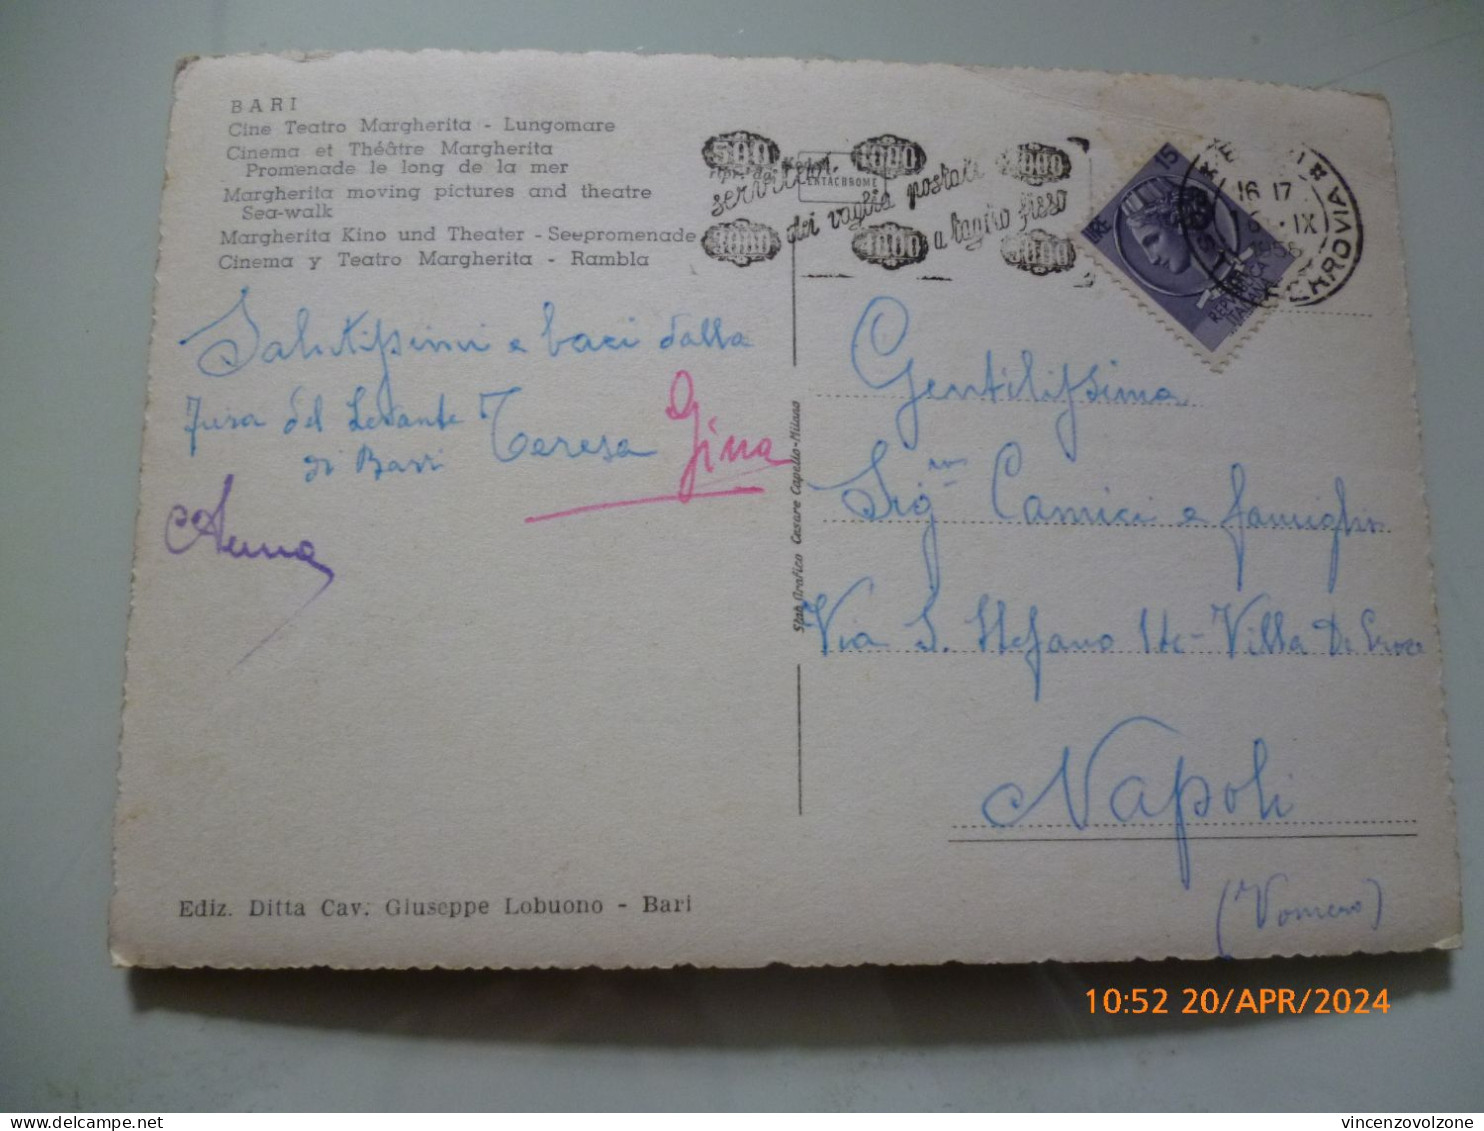 BARI
Cine Teatro Margherita - Lungomare
Cinema et Théâtre Margherita
Promenade le long de la mer
Margherita moving pictures and theatre
Sea-walk
Margherita Kino und Theater - Seepromenade
Cinema y Teatro Margherita - Rambla
500 1000
servitevi
dei vaglia postali
a taglio fisso
5000
EKTACHROME
LIRE 15
REPVBBLICA
ITALIANA
16 17
IX
FERROVIA
Salutissimi e baci dalla
Fiera del Levante
di Bari
Teresa
Gina
Anna
Gentilissima
Sig.ra Camici e famiglia
Via S. Stefano Villa De
Napoli
(Vomero)
Stab. Grafico Cesare Capello-Milano
Ediz. Ditta Cav. Giuseppe Lobuono - Bari
10:52 20/APR/2024
vincenzovolzone